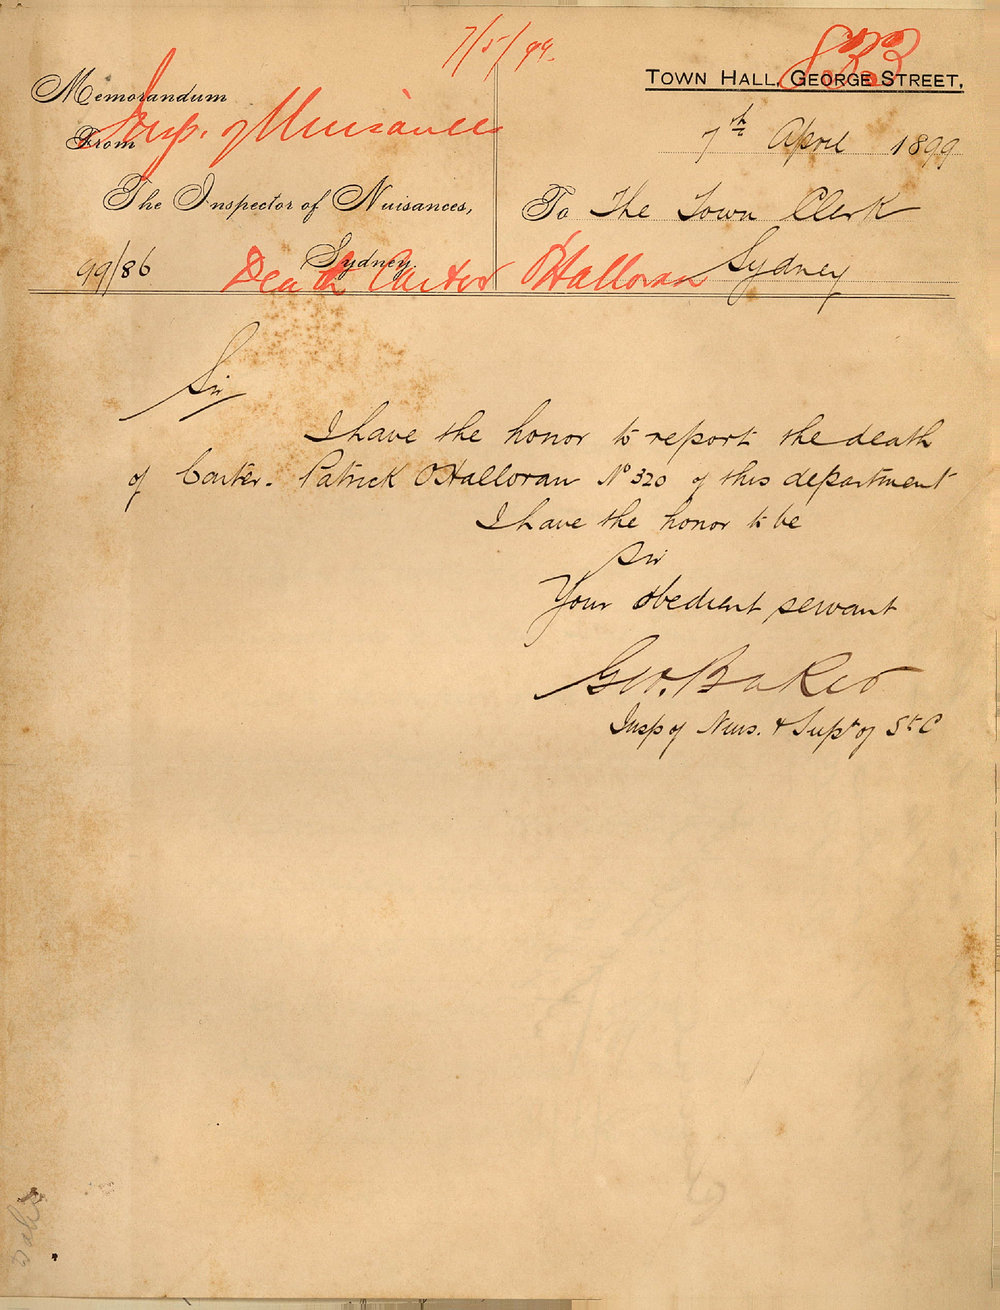 7/5/99.
833
TOWN HALL, GEORGE STREET,
Memorandum
From
Insp. of Nuisances
7th April 1899
The Inspector of Nuisances,
Sydney.
To The Town Clerk
Sydney
99/86
Death Carter O'Halloran
Sir
I have the honor to report the death
of Carter. Patrick O'Halloran No 320 of this department
I have the honor to be
Sir
Your obedient servant
Geo. Baker
Insp of Nuis. & Supt of St C